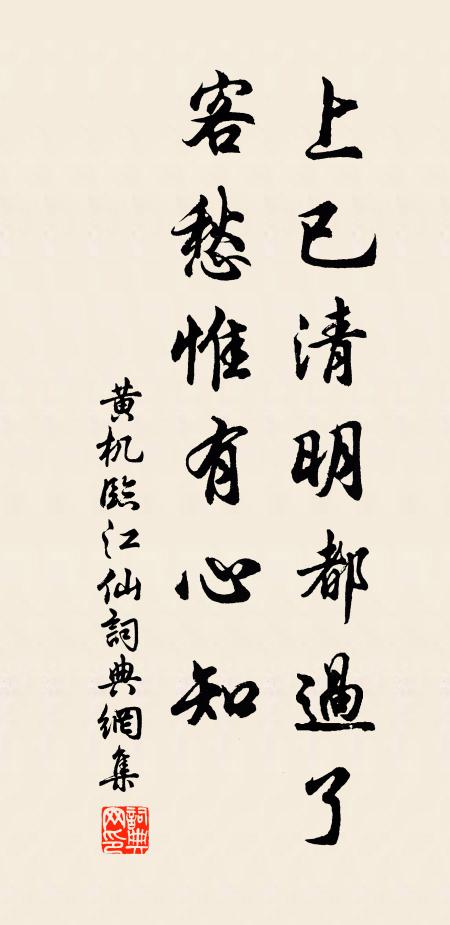 上巳清明都過了
客愁惟有心知
黄机臨江仙詞典網集
詞典网印